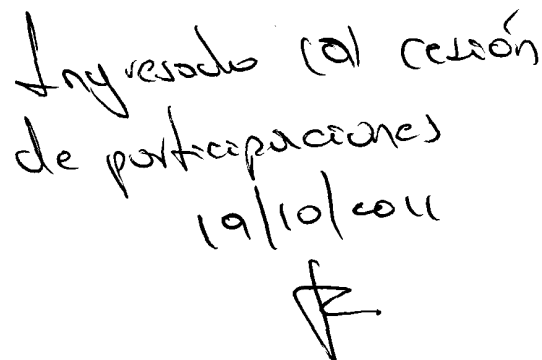 Ingresado (a) cesión
de participaciones
19/10/2011